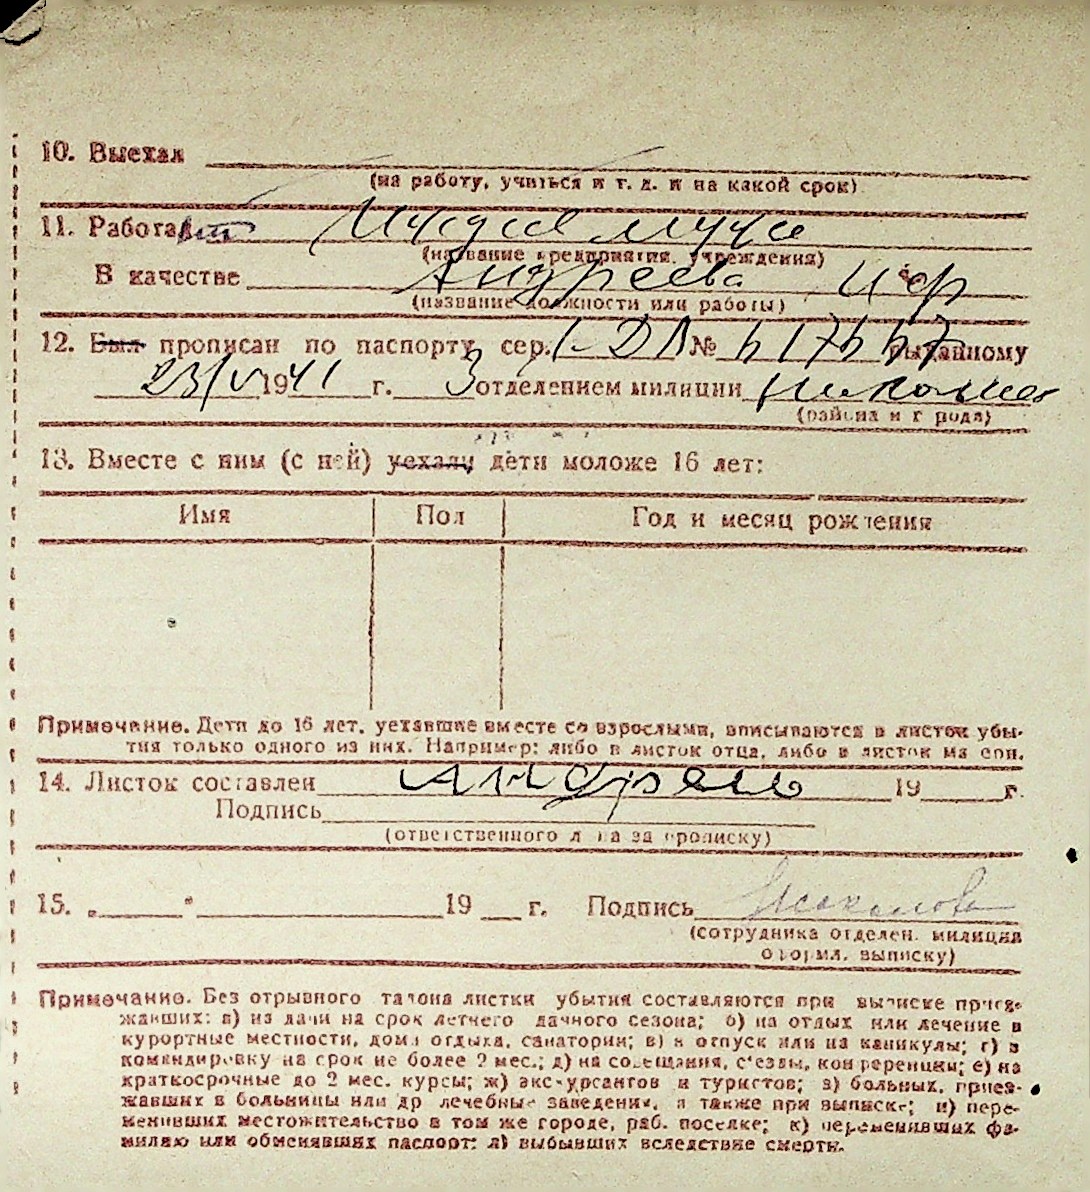 10. Выехал
(на работу, учиться и т. д. и на какой срок)
11. Работает
(название предприятия, учреждения)
В качестве Андреева
(название должности или работы)
12. Был прописан по паспорту сер. № выданному
23/V 1941 г. 3 отделением милиции
(района и города)
13. Вместе с ним (с ней) уехали дети моложе 16 лет:
Имя Пол Год и месяц рождения
Примечание. Дети до 16 лет, уехавшие вместе со взрослыми, вписываются в листок убы-
тия только одного из них. Например: либо в листок отца, либо в листок матери.
14. Листок составлен 19 г.
Подпись
(ответственного лица за прописку)
15. „ " 19 г. Подпись Соколова
(сотрудника отделен. милиции
оформл. выписку)
Примечание. Без отрывного талона листки убытия составляются при выписке приез-
жавших: а) из дачи на срок летнего дачного сезона; б) на отдых или лечение в
курортные местности, дома отдыха, санатории; в) в отпуск или на каникулы; г) в
командировку на срок не более 2 мес.; д) на совещания, съезды, конференции; е) на
краткосрочные до 2 мес. курсы; ж) экскурсантов и туристов; з) больных, приез-
жавших в больницы или др лечебные заведения, а также при выписке; и) пере-
менивших местожительство в том же городе, раб. поселке; к) переменивших фа-
милию или обменявших паспорт; л) выбывших вследствие смерти.